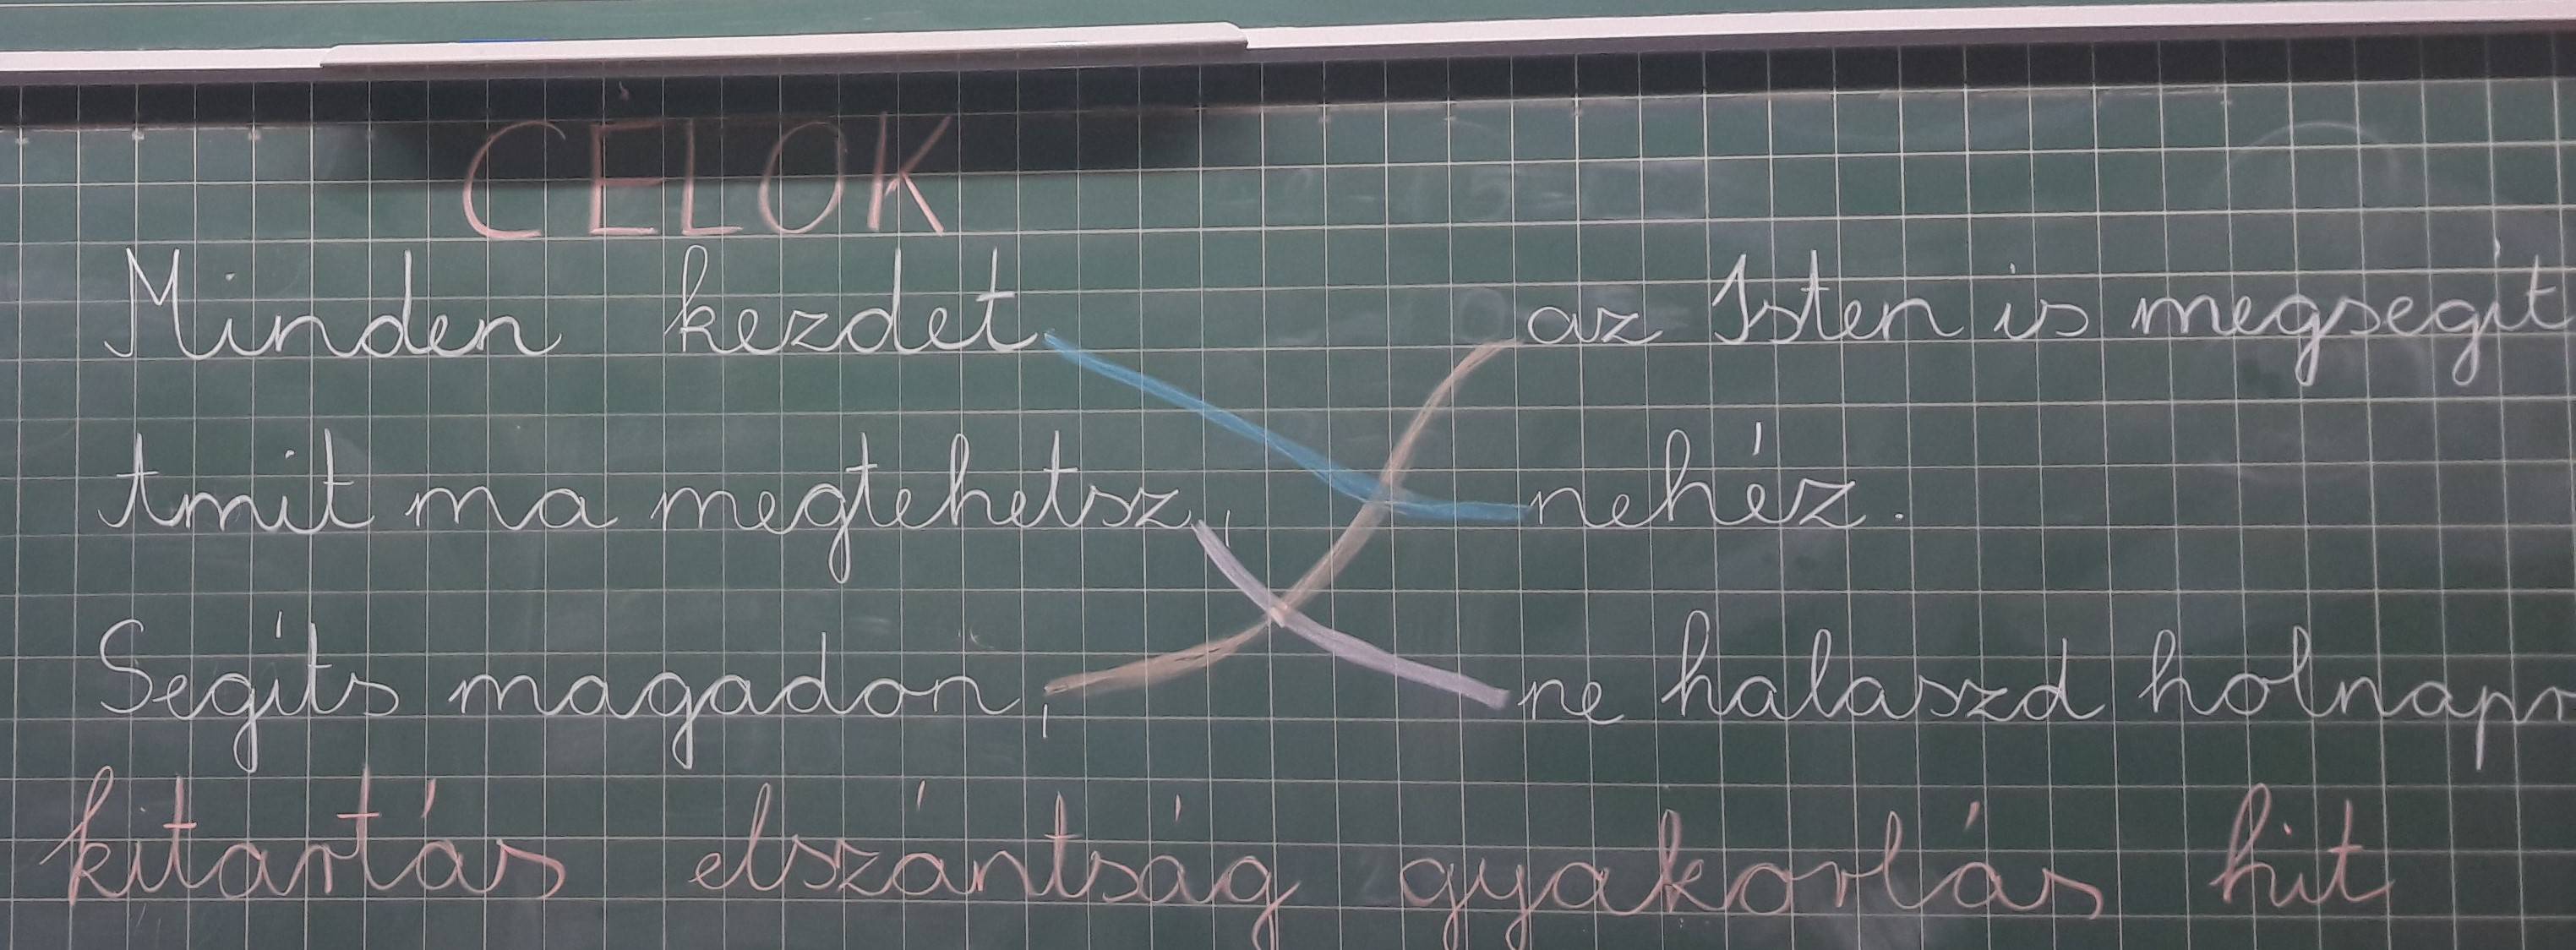 CÉLOK
Minden kezdet az Isten is megsegít
Amit ma megtehetsz, nehéz.
Segíts magadon, ne halaszd holnapr
kitartás elszántság gyakorlás hit